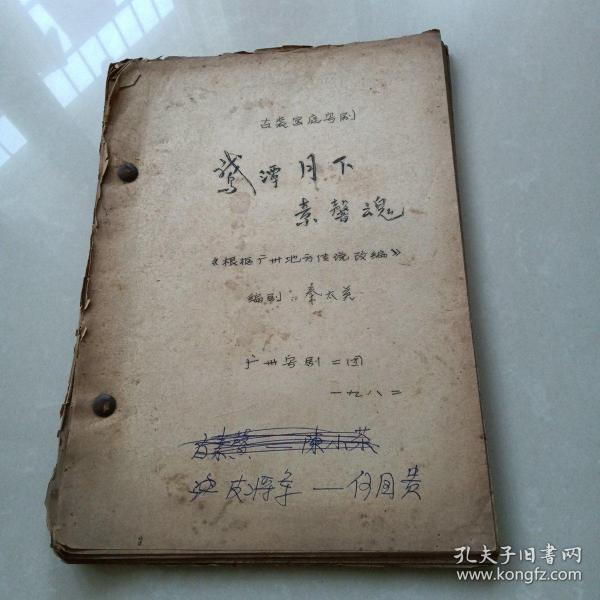 古装宫庭粤剧
鹅潭月下
素馨魂
《根据广州地方传说改编》
编剧：秦太英
广州粤剧二团
一九八二
方素馨 陈小茶
皮将军——何国贵
孔夫子旧书网
www.kongfz.com